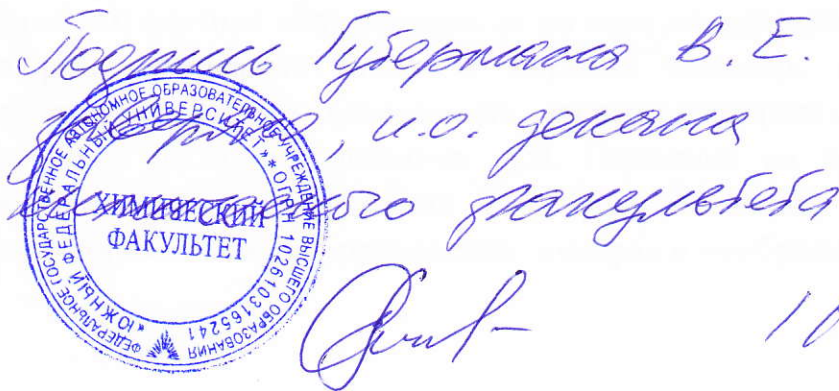 Подпись Гутермана В.Е.
заверяю, и.о. декана
химического факультета
ФЕДЕРАЛЬНОЕ ГОСУДАРСТВЕННОЕ АВТОНОМНОЕ ОБРАЗОВАТЕЛЬНОЕ УЧРЕЖДЕНИЕ ВЫСШЕГО ОБРАЗОВАНИЯ
«ЮЖНЫЙ ФЕДЕРАЛЬНЫЙ УНИВЕРСИТЕТ» * ОГРН 1026103165241
ХИМИЧЕСКИЙ
ФАКУЛЬТЕТ